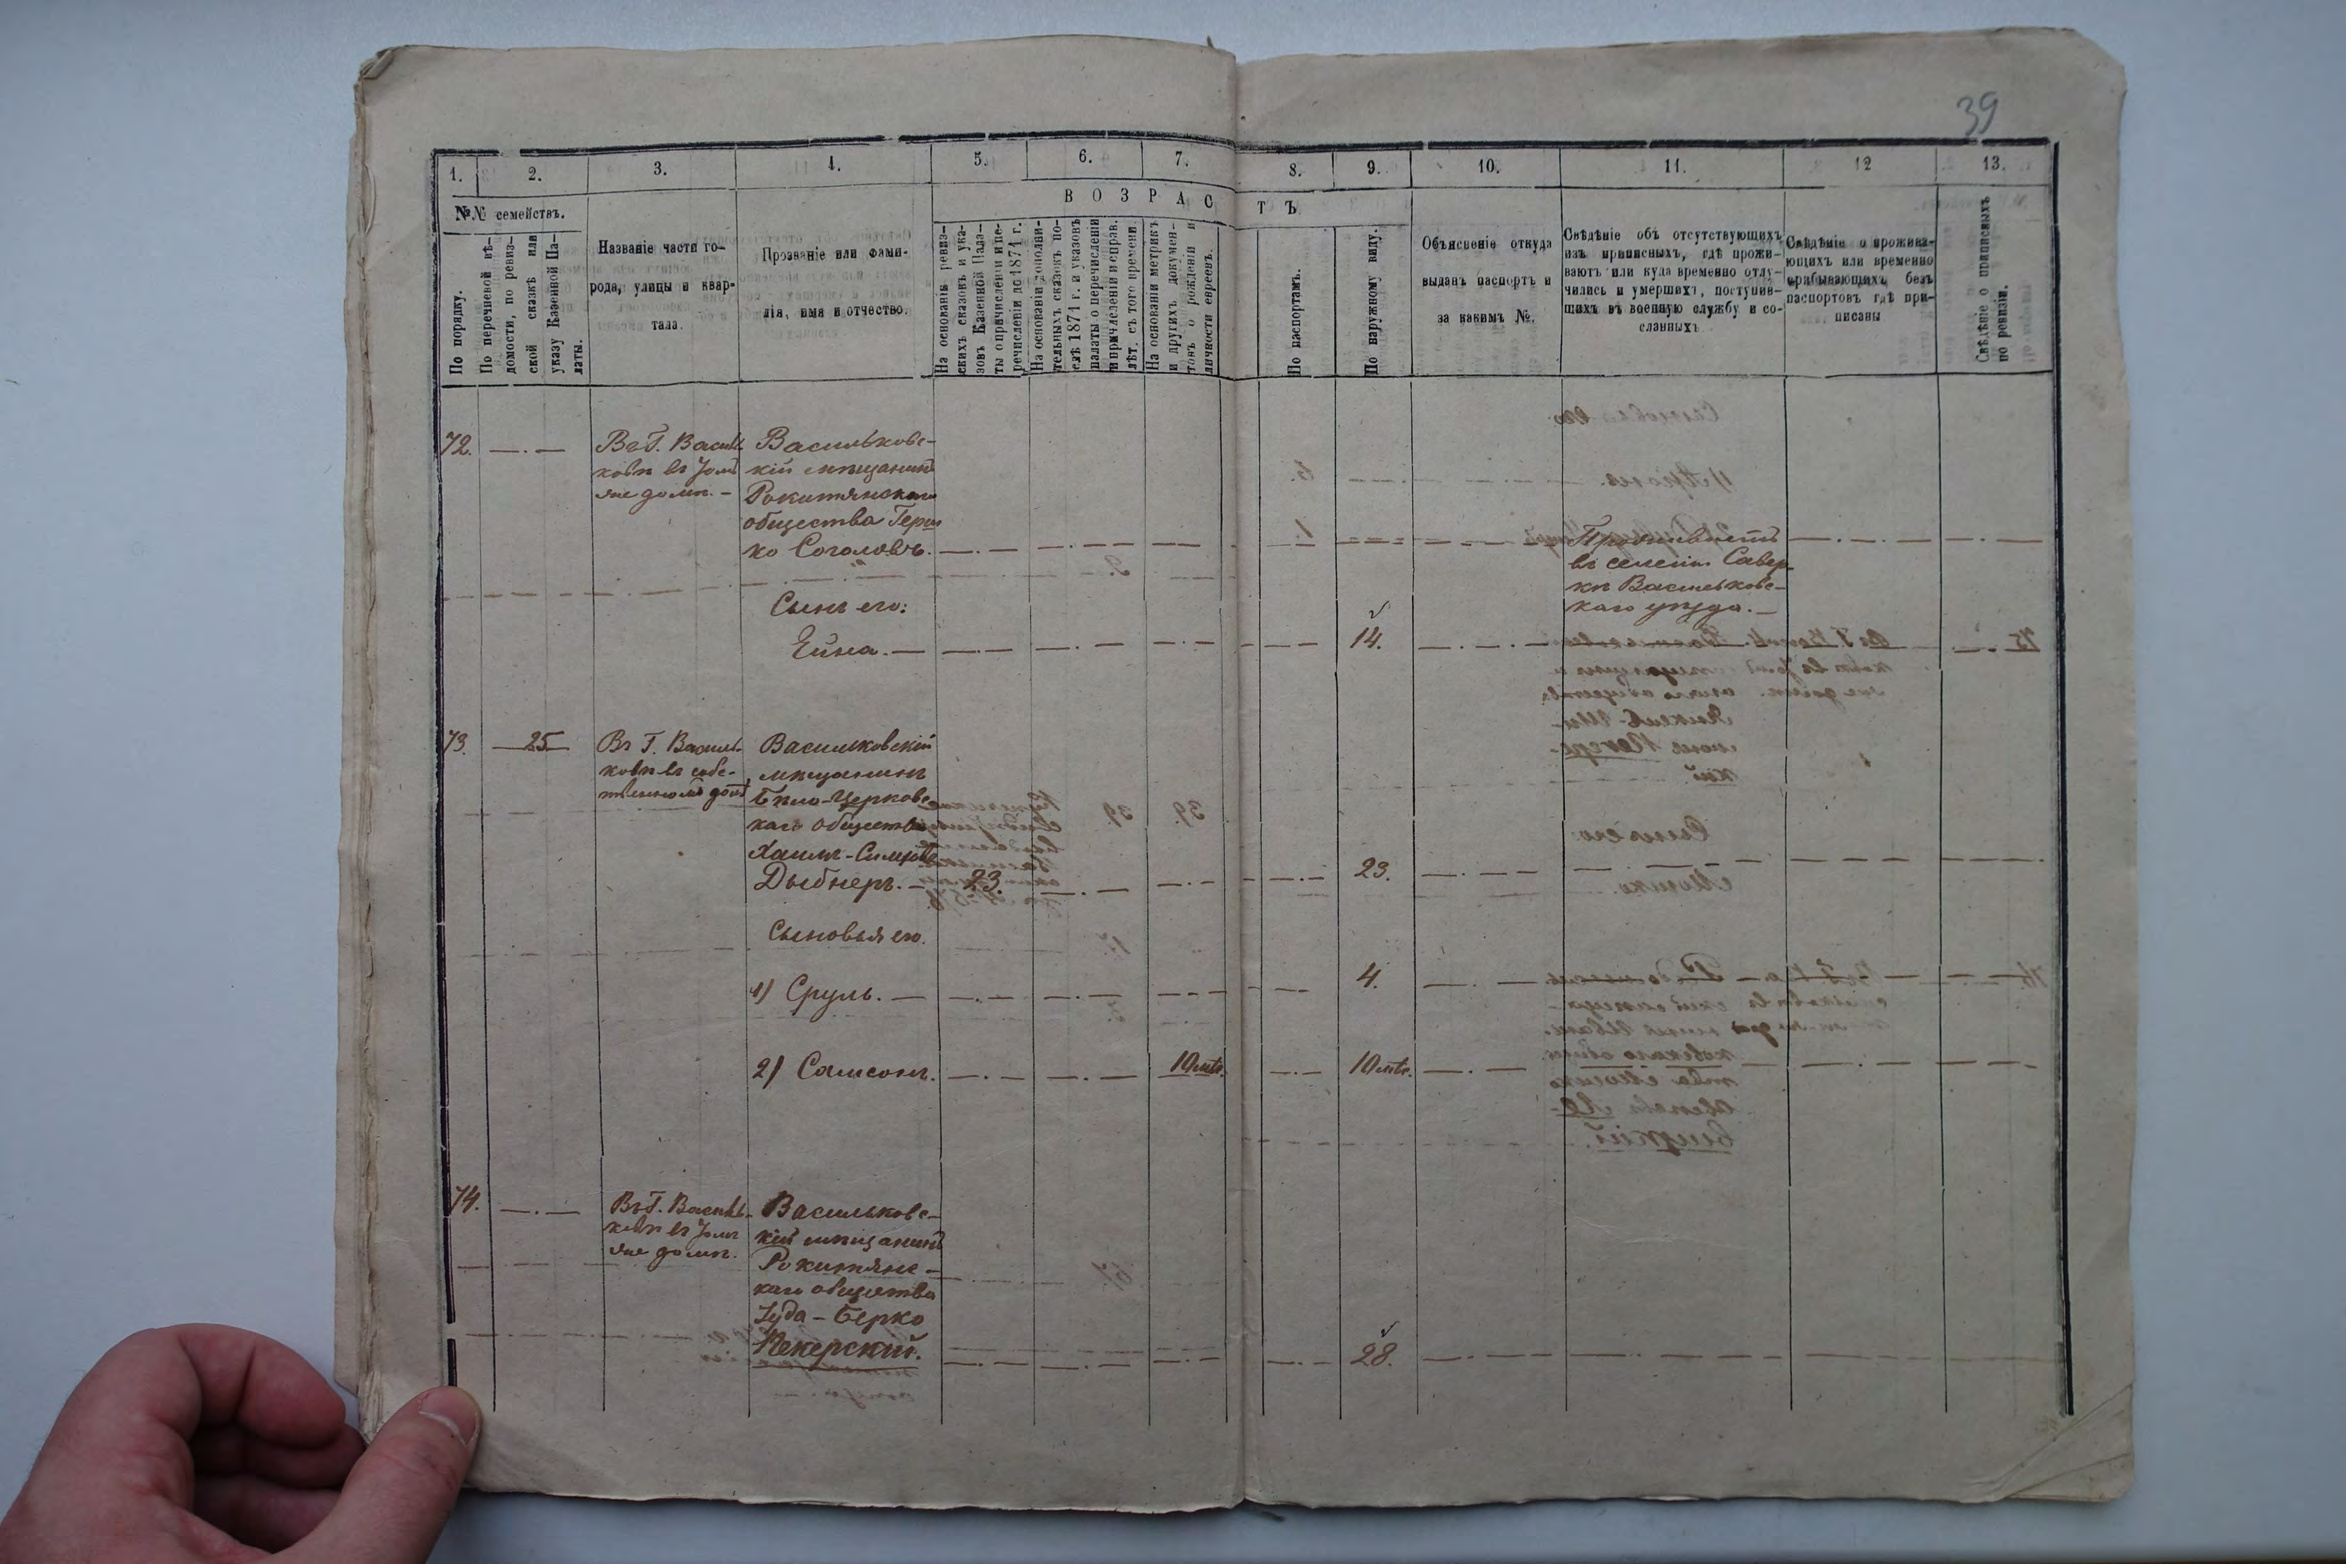 39
1. 2. 3. 4. 5. 6. 7. 8. 9. 10. 11. 12 13.
№№ семействъ.
По порядку.
По перечневой вѣ-
домости, по ревиз-
ской сказкѣ или
указу Казенной Па-
латы.
Названіе части го-
рода, улицы и квар-
тала.
Прозваніе или фами-
лія, имя и отчество.
ВОЗРАСТЪ.
На основаніи ревиз-
скихъ сказокъ и ука-
зовъ Казенной Пала-
ты о причисленіи и пе-
речисленіи до 1874 г.
На основаніи дополни-
тельныхъ сказокъ по-
слѣ 1874 г. и указовъ
палаты о перечисленіи
и причисленіи и справ.
лѣт. съ того времени.
На основаніи метрикъ
и другихъ докумен-
товъ о рожденіи и
личности евреевъ.
По паспортамъ.
По наружному виду.
Объясненіе откуда
выданъ паспортъ и
за какимъ №.
Свѣдѣніе объ отсутствующихъ
изъ приписныхъ, гдѣ прожи-
ваютъ или куда временно отлу-
чились и умершихъ, поступив-
шихъ въ военную службу и со-
сланныхъ
Свѣдѣніе о прожива-
ющихъ или временно
прибывающихъ безъ
паспортовъ гдѣ при-
писаны
Свѣдѣніе о приписныхъ
по ревизіи.
72.
Въ Г. Василь
ковѣ въ домѣ
Васильковс-
кій мѣщанинъ
Рокитянскаго
общества Герш
ко Соголовъ.
Проживаетъ
въ селеніи Савер-
кѣ Васильковс-
каго уѣзда.
Сынъ его:
14.
73. 25
Въ Г. Василь-
ковѣ въ собс-
твенномъ домѣ
Васильковскій
мѣщанинъ
Бѣло-Церковс
каго общества
Хаимъ-
Дыбнеръ. 23. 23.
Сыновья его.
1) Сруль. 4.
2) Самсонъ. 10 мѣс. 10 мѣс.
74.
Въ Г. Василь-
ковѣ въ
же домѣ.
Васильковс-
кій мѣщанинъ
Рокитянс-
каго общества
Іуда-Берко
Пекерскій. 28.